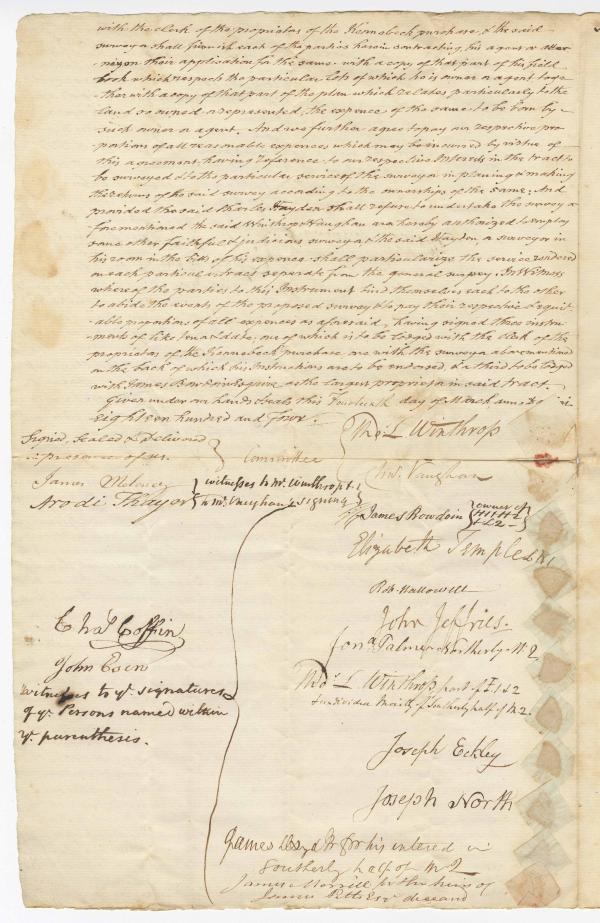 with the clerk of the proprietors of the Kennebeck purchase, & the said
surveyor shall furnish each of the parties herein contracting, his agent or attor-
ney on their application for the same with a copy of that part of the field
book which respects the particular lots of which he is owner or agent toge-
ther with a copy of that part of the plan which relates particularly to the
land so owned or represented, the expence of the same to be born by
such owner or agent. And we further agree to pay our respective pro-
portions of all reasonable expences which may be incurred by virtue of
this agreement, having reference to our respective Interests in the tract to
be surveyed & to the particular services of the surveyor in planing & making
the returns of the said survey according to the ownerships of the same. And
provided the said Charles Hayden shall refuse to undertake the survey a-
forementioned the said Winthrop & Vaughan are hereby authorized to employ
some other faithful & judicious surveyor & the said Hayden or surveyor in
his room in the bill of his expence shall particularize the service rendered
on each particular tract separate from the general survey. In Witness
whereof the parties to this Instrument bind themselves each to the other
to abide the events of the proposed survey & to pay their respective & equit-
able proportions of all expences as aforesaid, having signed three instru-
ments of like tenor & date, one of which is to be lodged with the clerk of the
proprietors of the Kennebeck purchase, one with the surveyor abovementioned
on the back of which his Instructions are to be endorsed, & a third to be lodged
with James Bowdoin Esquire, as the largest proprietor in said tract.
Given under our hands & seals this Fourteenth day of March
Eighteen hundred and Four.
Signed, Sealed & Delivered
in presence of us.
Committee
Tho. L Winthrop
Chs. Vaughan
James
Arodi Thayer
witnesses to Mr. Winthrop &
to Mr. Vaughan's signing
James Bowdoin
owner of
Elizabeth Temple
Rob. Hallowell
John Jeffries.
Jona. Palmer Northerly No. 2
Tho. L Winthrop part of
& undivided Moiety of Southerly half of No. 2.
Joseph Eckley
Joseph North
James Lloyd Jr for his interest in
Southerly half of No 2
James Morrill for the heirs of
James Pitts Esqr deceased
Chal. Coffin
John
witnesses to ye. signatures
of ye. Persons named within
ye. parenthesis.